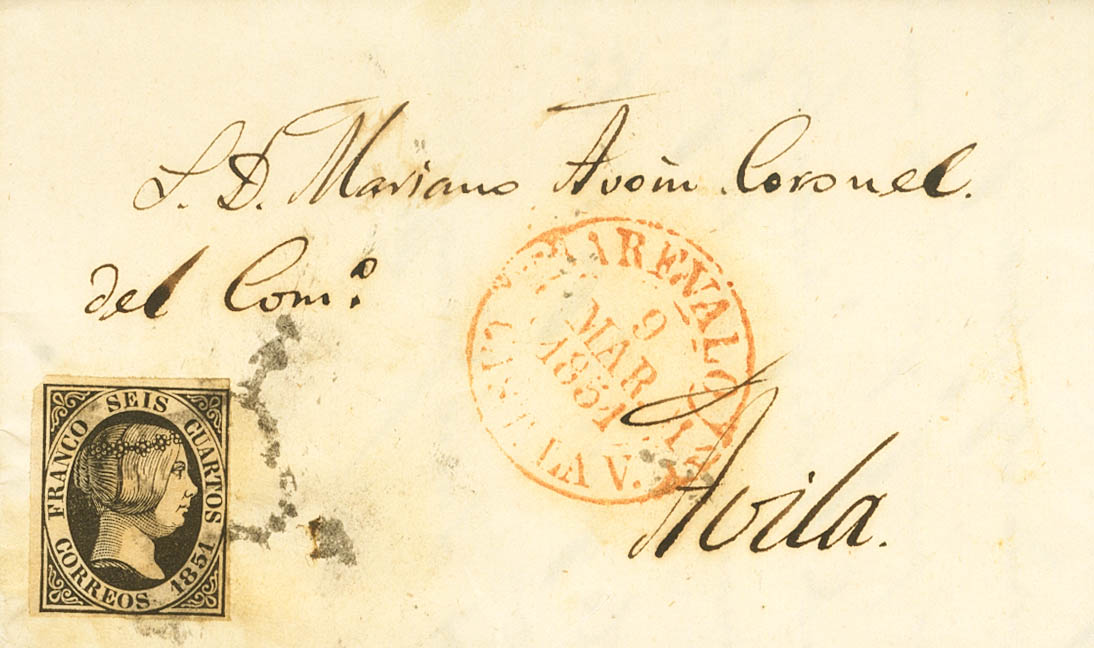 S. D. Mariano Coronel.
del Com.º
AREVALO
9
MAR
1851
LA V.
Avila.
FRANCO SEIS CUARTOS
CORREOS. 1851